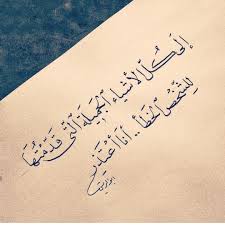 إلى كُلّ الأشياء الجميلة التي قدمتُها
للشخص الخطأ .. أنا أعتذر